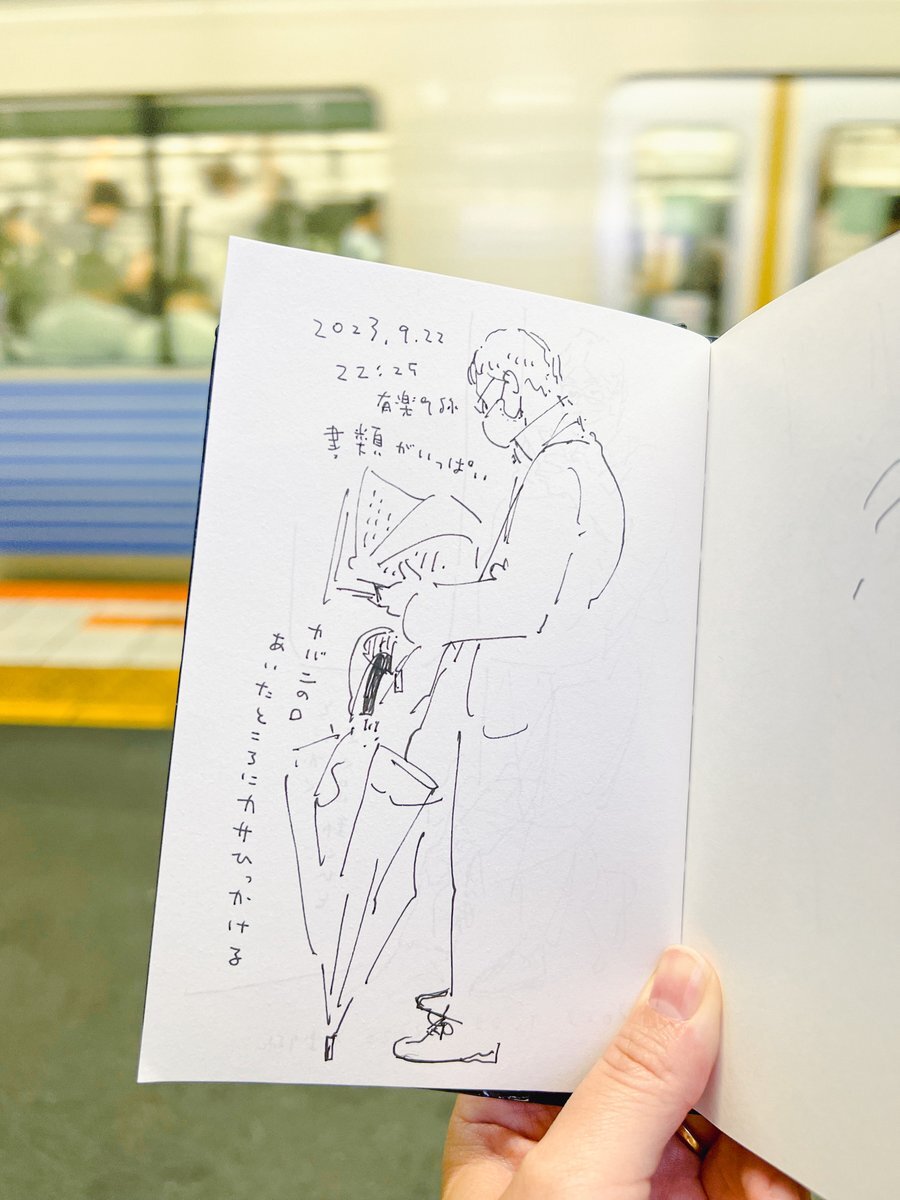 2023.9.22
22:25
有楽町線
書類がいっぱい
カバンの口
あいたところにカサひっかける